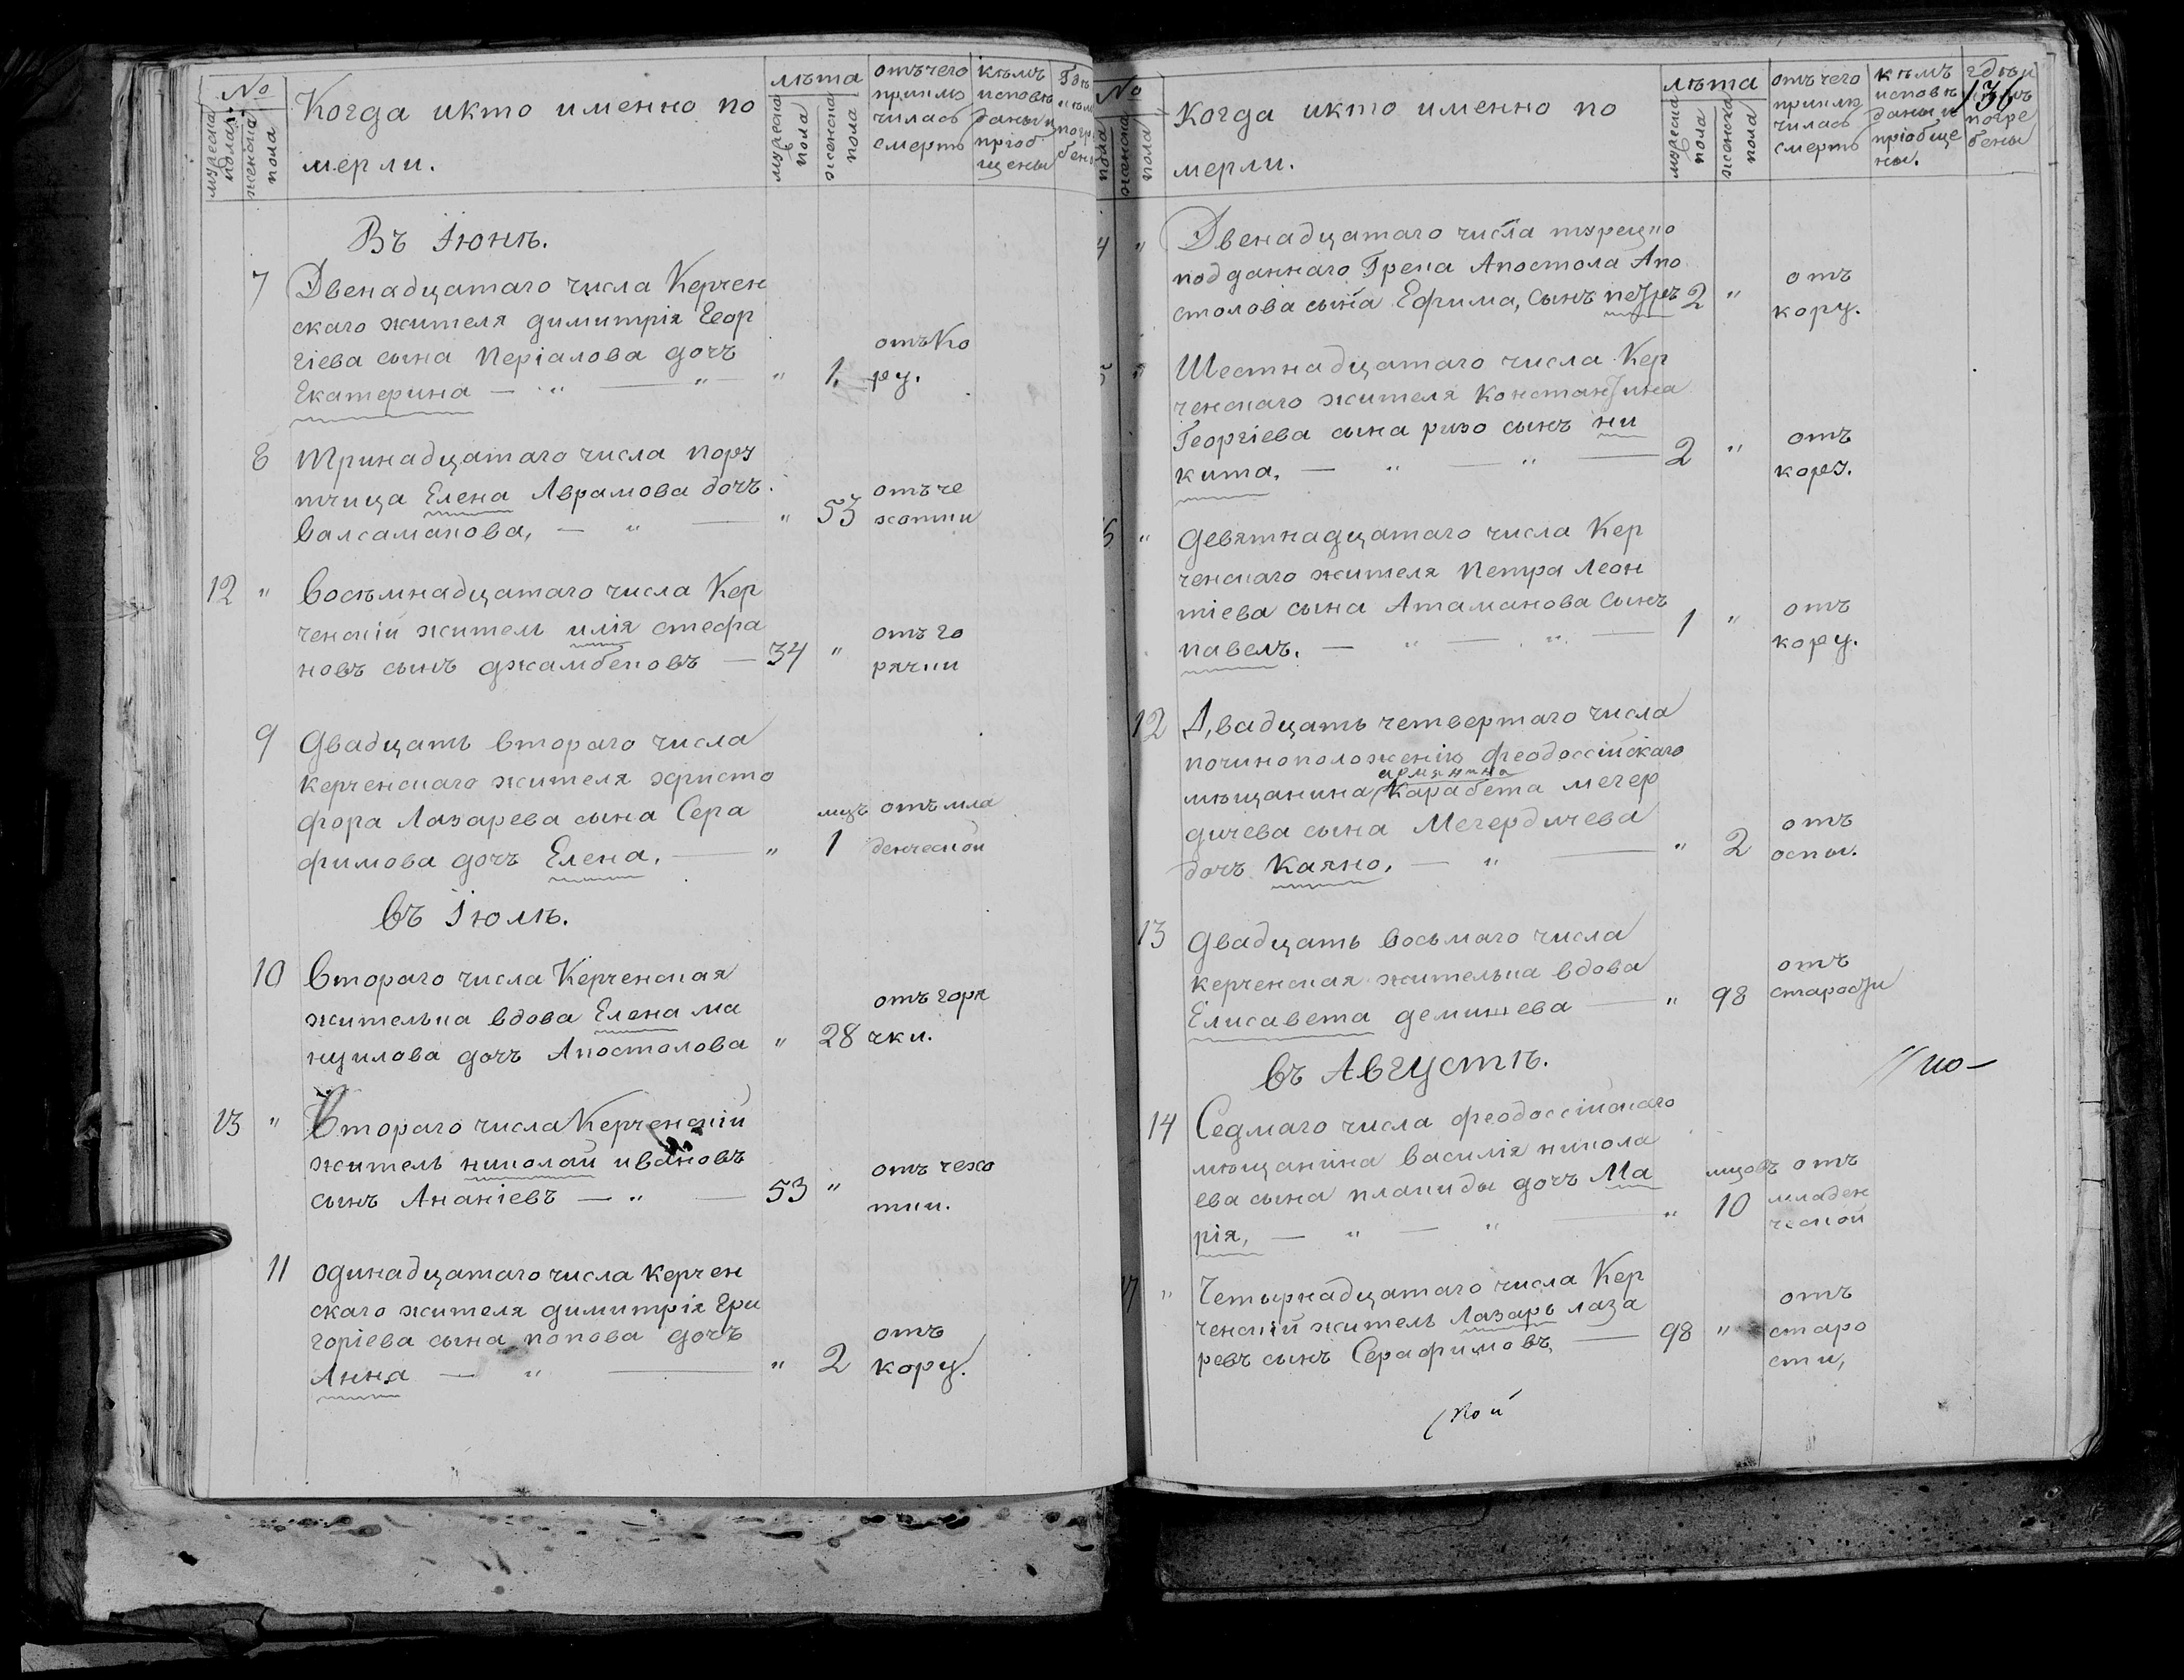 №
мужеска пола
женска пола
Когда и кто именно по
мерли.
лѣта
мужеска пола
женска пола
отъ чего
приклю
чилась
смерть
кѣмъ
исповѣ
даны и
пріоб
щены
Въ Іюнѣ.
7 Двенадцатаго числа Керчен
скаго жителя димитрія Геор
гіева сына Періалова дочь
Екатерина — „ — „ — „ 1. отъ Ко
ру.
8 Тринадцатаго числа порт
тчица Елена Аврамова дочь
Валсамакова, — „ — „ 53 отъ че
хотки
12 „ Восѣмнадцатаго числа Кер
ченскій жител илія стефа
новъ сынъ джамбековъ — 34 „ отъ го
рячки
9 Двадцать втораго числа
керченскаго жителя христо
фора Лазарева сына Сера
фимова дочь Елена, — „ мцъ 1 отъ мла
денческой
Въ Іюлѣ.
10 Втораго числа Керченская
жителька вдова Елена ма
нуилова дочь Апостолова „ 28 отъ горя
чки.
13 „ Втораго числа Керченскій
житель николай ивановъ
сынъ Ананіевъ — „ — 53 „ отъ чехо
тки.
11 Одинадцатаго числа керчен
скаго жителя димитрія Гри
горіева сына попова дочь
Анна — „ — „ 2 отъ
кору.
№
пола
женска пола
Когда и кто именно по
мерли.
лѣта
мужеска пола
женска пола
отъ чего
приклю
чилась
смерть
кѣмъ
исповѣ
даны и
пріобще
ны.
гдѣ и
погре
бены
136
4 „ Двенадцатаго числа турецко
подданнаго Грека Апостола Апо
столова сына Ефима, сынъ петръ 2 „ отъ
кору.
5 „ Шестнадцатаго числа Кер
ченскаго жителя Константина
Георгіева сына ризо сынъ ни
кита, — „ — „ — 2 „ отъ
кору.
„ Девятнадцатаго числа Кер
ченскаго жителя Петра Леон
тіева сына Атаманова сынъ
павелъ. — „ — „ — 1 „ отъ
кору.
12 Двадцать четвертаго числа
по чиноположенію феодоссійскаго
армянина
мѣщанина Карабета мегер
дичева сына Мегердичева
дочь Каяно, — „ — „ 2 отъ
оспы.
13 Двадцать восьмаго числа
керченская жителька вдова
Елисавета демишева — „ 98 отъ
старости
Въ Августѣ.
14 Седмаго числа феодоссійскаго
мѣщанина Василія никола
ева сына плакиды дочь Ма
рія, — „ — „ — „ мцовъ 10 отъ
младен
ческой
„ Четырнадцатаго числа Кер
ченскій житель Лазарь лаза
ревъ сынъ Серафимовъ, — 98 „ отъ
старо
сти,
кой